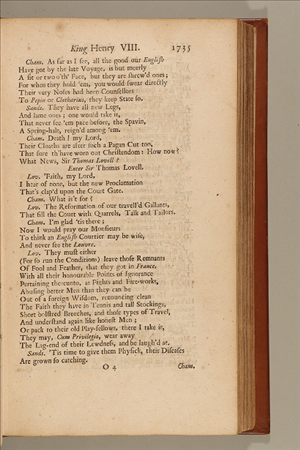 King Henry VIII. 1735
Cham. As far as I see, all the good our English
Have got by the late Voyage, is but meerly
A fit or two o'th' Face, but they are shrew'd ones;
For when they hold 'em, you would swear directly
Their very Noses had been Counsellors
To Pepin or Clotharius, they keep State so.
Sands. They have all new Legs,
And lame ones; one would take it,
That never see 'em pace before, the Spavin,
A Spring-halt, reign'd among 'em.
Cham. Death! my Lord,
Their Cloaths are after such a Pagan Cut too,
That sure th'have worn out Christendom: How now?
What News, Sir Thomas Lovell?
Enter Sir Thomas Lovell.
Lov. 'Faith, my Lord,
I hear of none, but the new Proclamation
That's clap'd upon the Court Gate.
Cham. What is't for?
Lov. The Reformation of our travell'd Gallants,
That fill the Court with Quarrels, Talk and Tailors.
Cham. I'm glad 'tis there;
Now I would pray our Monsieurs
To think an English Courtier may be wise,
And never see the Louvre.
Lov. They must either
(For so run the Conditions) leave those Remnants
Of Fool and Feather, that they got in France,
With all their honourable Points of Ignorance
Pertaining thereunto, as Fights and Fire-works,
Abusing better Men than they can be
Out of a foreign Wisdom, renouncing clean
The Faith they have in Tennis and tall Stockings,
Short bolstred Breeches, and those types of Travel,
And understand again like honest Men;
Or pack to their old Play-fellows, there I take it,
They may, Cum Privilegio, wear away
The Lag-end of their Lewdness, and be laugh'd at.
Sands. 'Tis time to give them Physick, their Diseases
Are grown so catching.
O 4 Cham.